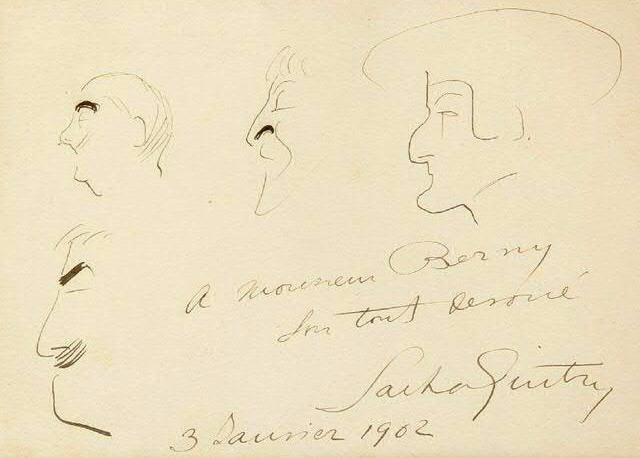 A monsieur Berny
Son tout dévoué
Sacha Guitry
3 Janvier 1902